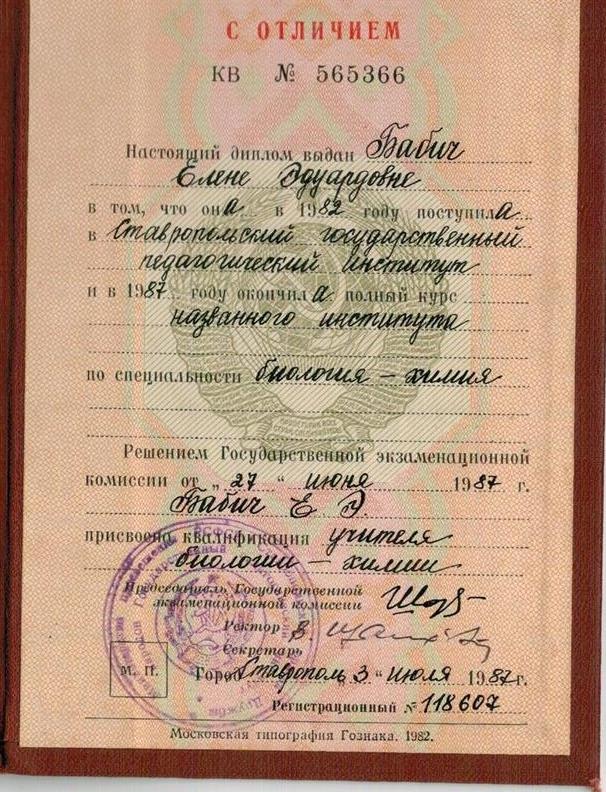 С ОТЛИЧИЕМ
КВ № 565366
Настоящий диплом выдан Бабич
Елене Эдуардовне
в том, что она в 1982 году поступила
в Ставропольский государственный
педагогический институт
и в 1987 году окончила полный курс
названного института
по специальности биология – химия
Решением Государственной экзаменационной
комиссии от „ 27 " июня 1987 г.
Бабич Е Э.
присвоена квалификация учителя
биологии – химии
Председатель Государственной
экзаменационной комиссии
Ректор
Секретарь
М. П.
Город Ставрополь „ 3 " июля 1987 г.
Регистрационный № 118607
Московская типография Гознака. 1982.